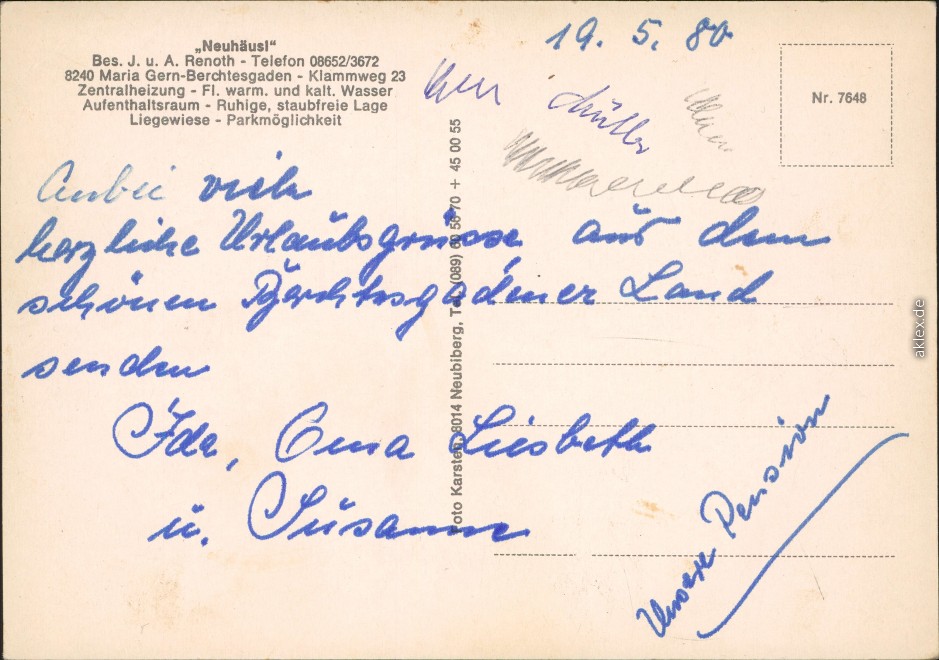 „Neuhäusl"
Bes. J. u. A. Renoth - Telefon 08652/3672
8240 Maria Gern-Berchtesgaden - Klammweg 23
Zentralheizung - Fl. warm. und kalt. Wasser
Aufenthaltsraum - Ruhige, staubfreie Lage
Liegewiese - Parkmöglichkeit
19. 5. 80
Nr. 7648
Anbei viele
herzliche Urlaubsgrüsse aus dem
schönen Berchtesgadener Land
senden
Ida, Oma Liesbeth
u. Susanne
Unsere Pension
Foto Karsten, 8014 Neubiberg, Tel. (089) 60 56 70 + 45 00 55
aklex.de